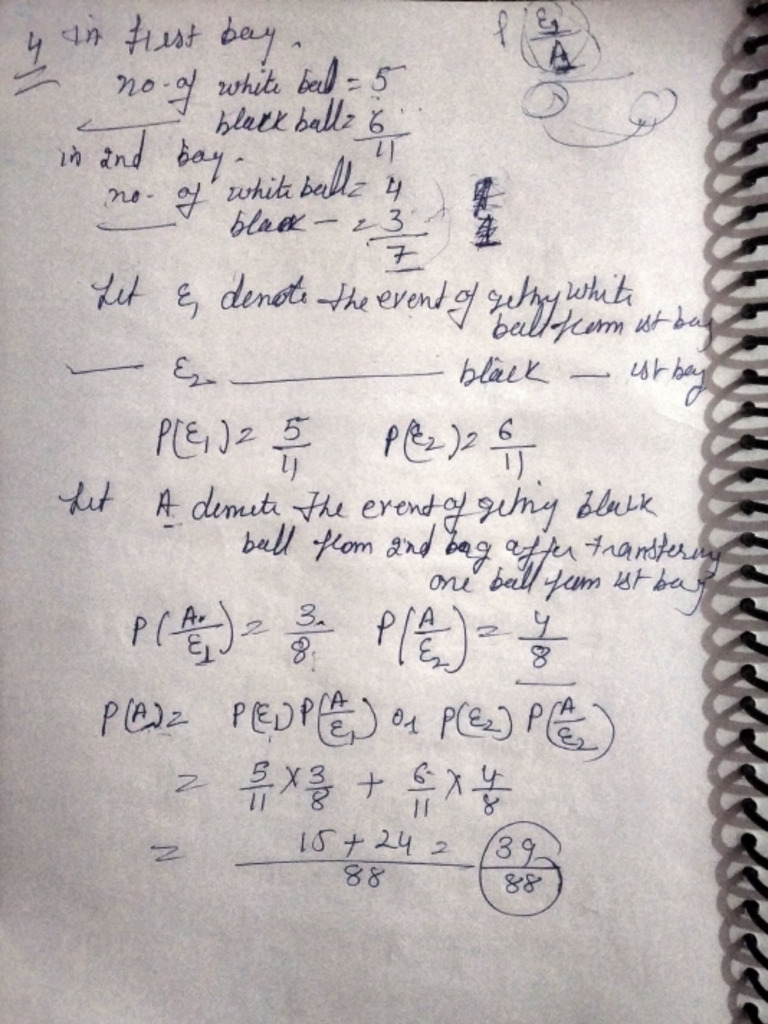 4 in first bag.
no. of white ball = 5
black ball = 6
11
in 2nd bag.
no. of white ball = 4
black — = 3
7
Let E1 denote the event of getting white
ball from 1st bag
— E2 ——— black — 1st bag
P(E1) = 5/11 P(E2) = 6/11
Let A denote the event of getting black
ball from 2nd bag after transfering
one ball from 1st bag
P(A/E1) = 3/8 P(A/E2) = 4/8
P(A) = P(E1) P(A/E1) or P(E2) P(A/E2)
= 5/11 × 3/8 + 6/11 × 4/8
= 15 + 24 / 88 = 39/88